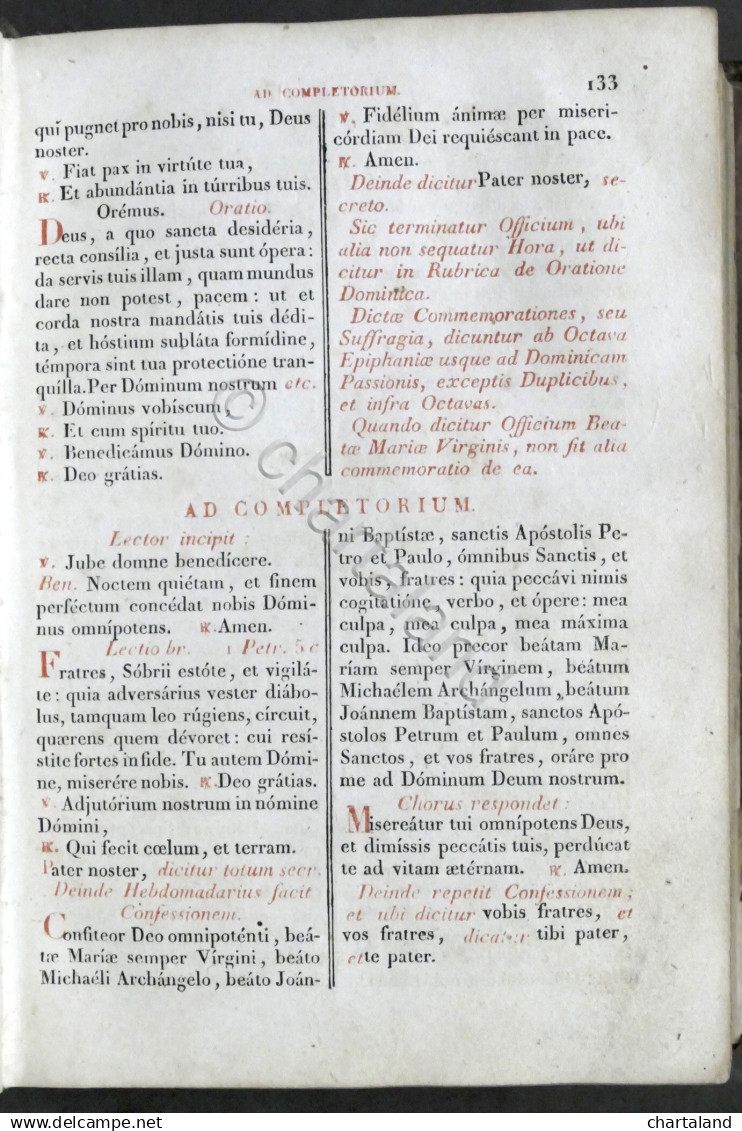 AD COMPLETORIUM.
133
qui pugnet pro nobis, nisi tu, Deus
noster.
℣. Fiat pax in virtúte tua,
℟. Et abundántia in túrribus tuis.
Orémus. Oratio.
Deus, a quo sancta desidéria,
recta consília, et justa sunt ópera:
da servis tuis illam, quam mundus
dare non potest, pacem: ut et
corda nostra mandátis tuis dédi-
ta, et hóstium subláta formídine,
témpora sint tua protectióne tran-
quílla. Per Dóminum nostrum etc.
℣. Dóminus vobíscum,
℟. Et cum spíritu tuo.
℣. Benedicámus Dómino.
℟. Deo grátias.
℣. Fidélium ánimæ per miseri-
córdiam Dei requiéscant in pace.
℟. Amen.
Deinde dicitur Pater noster, se-
creto.
Sic terminatur Officium, ubi
alia non sequatur Hora, ut di-
citur in Rubrica de Oratione
Dominica.
Dictæ Commemorationes, seu
Suffragia, dicuntur ab Octava
Epiphaniæ usque ad Dominicam
Passionis, exceptis Duplicibus,
et infra Octavas.
Quando dicitur Officium Bea-
tæ Mariæ Virginis, non fit alia
commemoratio de ea.
AD COMPLETORIUM.
Lector incipit:
℣. Jube domne benedícere.
Ben. Noctem quiétam, et finem
perféctum concédat nobis Dómi-
nus omnípotens. ℟. Amen.
Lectio br. 1 Petr. 5 c
Fratres, Sóbrii estóte, et vigilá-
te: quia adversárius vester diábo-
lus, tamquam leo rúgiens, círcuit,
quærens quem dévoret: cui resí-
stite fortes in fide. Tu autem Dómi-
ne, miserére nobis. ℟. Deo grátias.
℣. Adjutórium nostrum in nómine
Dómini,
℟. Qui fecit cœlum, et terram.
Pater noster, dicitur totum secr.
Deinde Hebdomadarius facit
Confessionem.
Confíteor Deo omnipoténti, beá-
tæ Maríæ semper Vírgini, beáto
Michaéli Archángelo, beáto Joán-
ni Baptístæ, sanctis Apóstolis Pe-
tro et Paulo, ómnibus Sanctis, et
vobis, fratres: quia peccávi nimis
cogitatióne, verbo, et ópere: mea
culpa, mea culpa, mea máxima
culpa. Ideo precor beátam Ma-
ríam semper Vírginem, beátum
Michaélem Archángelum, beátum
Joánnem Baptístam, sanctos Apó-
stolos Petrum et Paulum, omnes
Sanctos, et vos fratres, oráre pro
me ad Dóminum Deum nostrum.
Chorus respondet:
Misereátur tui omnípotens Deus,
et dimíssis peccátis tuis, perdúcat
te ad vitam ætérnam. ℟. Amen.
Deinde repetit Confessionem;
et ubi dicitur vobis fratres, et
vos fratres, dicatur tibi pater,
et te pater.
© chartaland
delcampe.net
chartaland